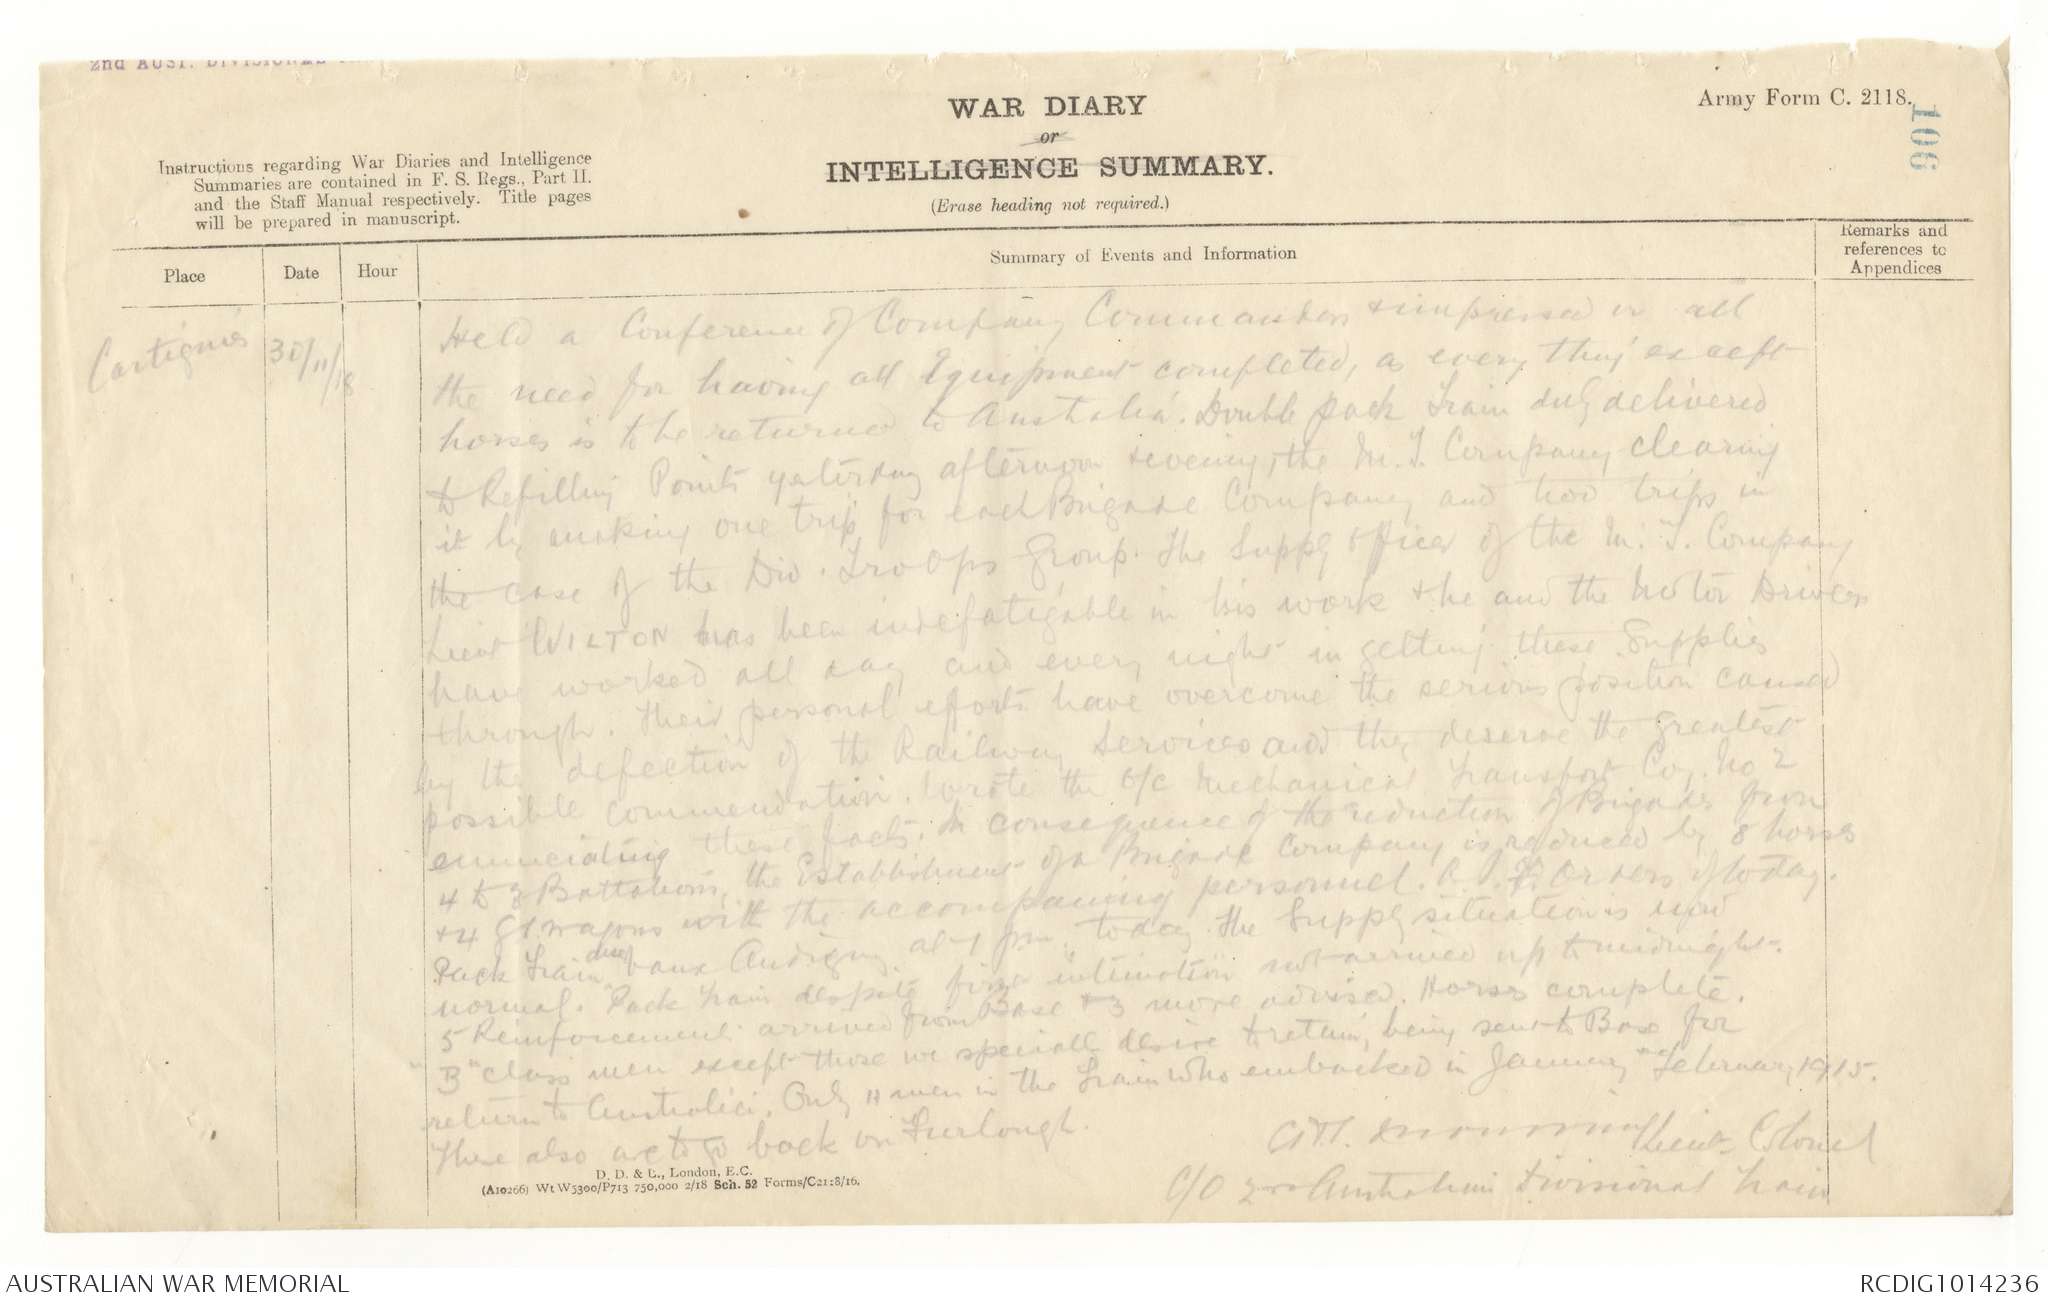 2nd AUST. DIVISIONAL
WAR DIARY
or
INTELLIGENCE SUMMARY.
(Erase heading not required.)
Army Form C. 2118.
106
Instructions regarding War Diaries and Intelligence
Summaries are contained in F. S. Regs., Part II.
and the Staff Manual respectively. Title pages
will be prepared in manuscript.
Place
Date
Hour
Summary of Events and Information
Remarks and
references to
Appendices
Cartignies
30/11/18
Held a Conference of Company Commanders & impressed on all
the need for having all Equipment completed, as every thing except
horses is to be returned to Australia. Double pack train duly delivered
to Refilling Points yesterday afternoon & evening, the M.T. Company clearing
it by making one trip for each Brigade Company and two trips in
the case of the Div. Troops Group. The Supply Officer of the M.T. Company
Lieut WILTON has been indefatigable in his work & he and the Motor Drivers
have worked all day and every night in getting these Supplies
through. Their personal efforts have overcome the serious position caused
by the defection of the Railway Services and they deserve the greatest
possible commendation. Wrote the O/C Mechanical Transport Coy. No 2
enunciating these facts. In consequence of the reduction of Brigades from
4 to 3 Battalions, the Establishment of a Brigade Company is reduced by 8 horses
& 4 G.S. wagons with the accompanying personnel. A.I.F. Orders of today.
Pack Train Vaux Andigny at 1 pm. today. The Supply situation is now
normal. Pack train despite intimation not arrived up to midnight.
5 Reinforcements arrived from Base & 3 more advised. Horses complete.
"B" class men except those we specially desire to retain, being sent to Base for
return to Australia. Only 11 men in the Train who embarked in January & February, 1915.
These also are to go back on Furlough.
Lieut. Colonel
C/O 2nd Australian Divisional Train
D. D. & L., London, E.C.
(A10266) Wt W5300/P713 750,000 2/18 Sch. 52 Forms/C2118/16.
AUSTRALIAN WAR MEMORIAL
RCDIG1014236